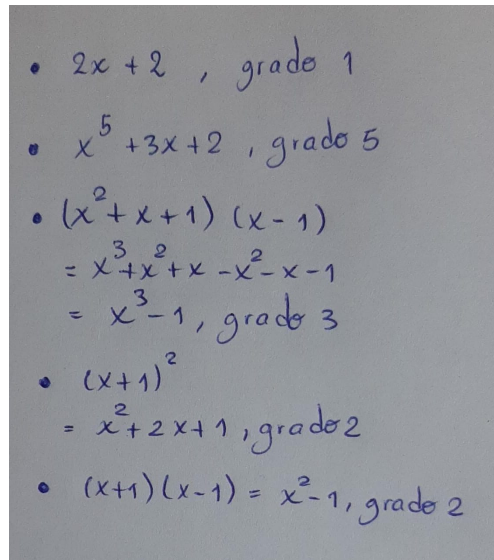 • 2x + 2 , grado 1
• x⁵ + 3x + 2 , grado 5
• (x² + x + 1) (x - 1)
= x³ + x² + x - x² - x - 1
= x³ - 1 , grado 3
• (x + 1)²
= x² + 2x + 1 , grado 2
• (x+1) (x-1) = x² - 1, grado 2